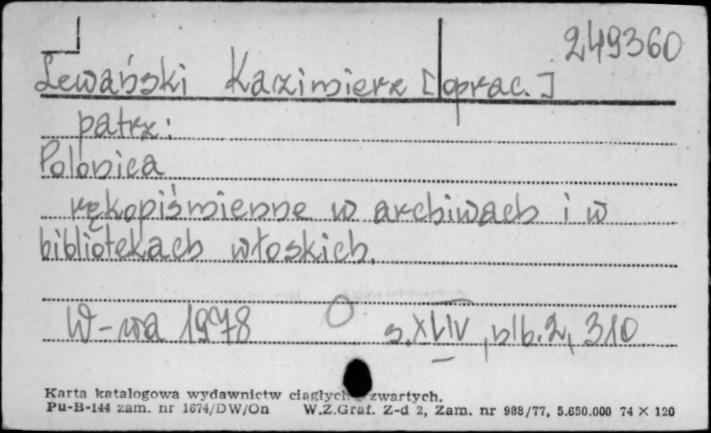 249360
Lewański Kazimierz [oprac.]
patrz:
Polonica
rękopiśmienne w archiwach i w
bibliotekach włoskich.
W-wa 1978 s. XLIV, nlb. 2, 310
Karta katalogowa wydawnictw ciągłych zwartych.
Pu-B-144 zam. nr 1674/DW/On W.Z.Graf. Z-d 2, Zam. nr 988/77, 5.650.000 74 X 120